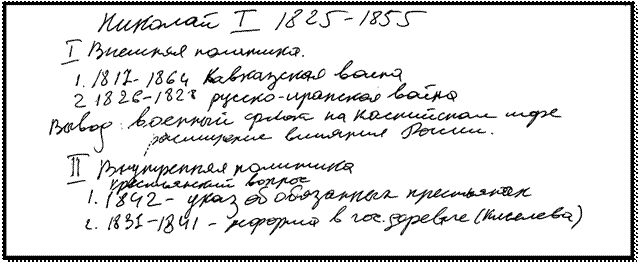 Николай I 1825-1855
I Внешняя политика.
1. 1817-1864 Кавказская война
2 1826-1828 русско-иранская война
Вывод: военный флот на Каспийском море
расширение влияния России.
II Внутренняя политика
крестьянский вопрос
1. 1842 - указ об обязанных крестьянах
2. 1837-1841 - реформа в гос. деревне (Киселева)